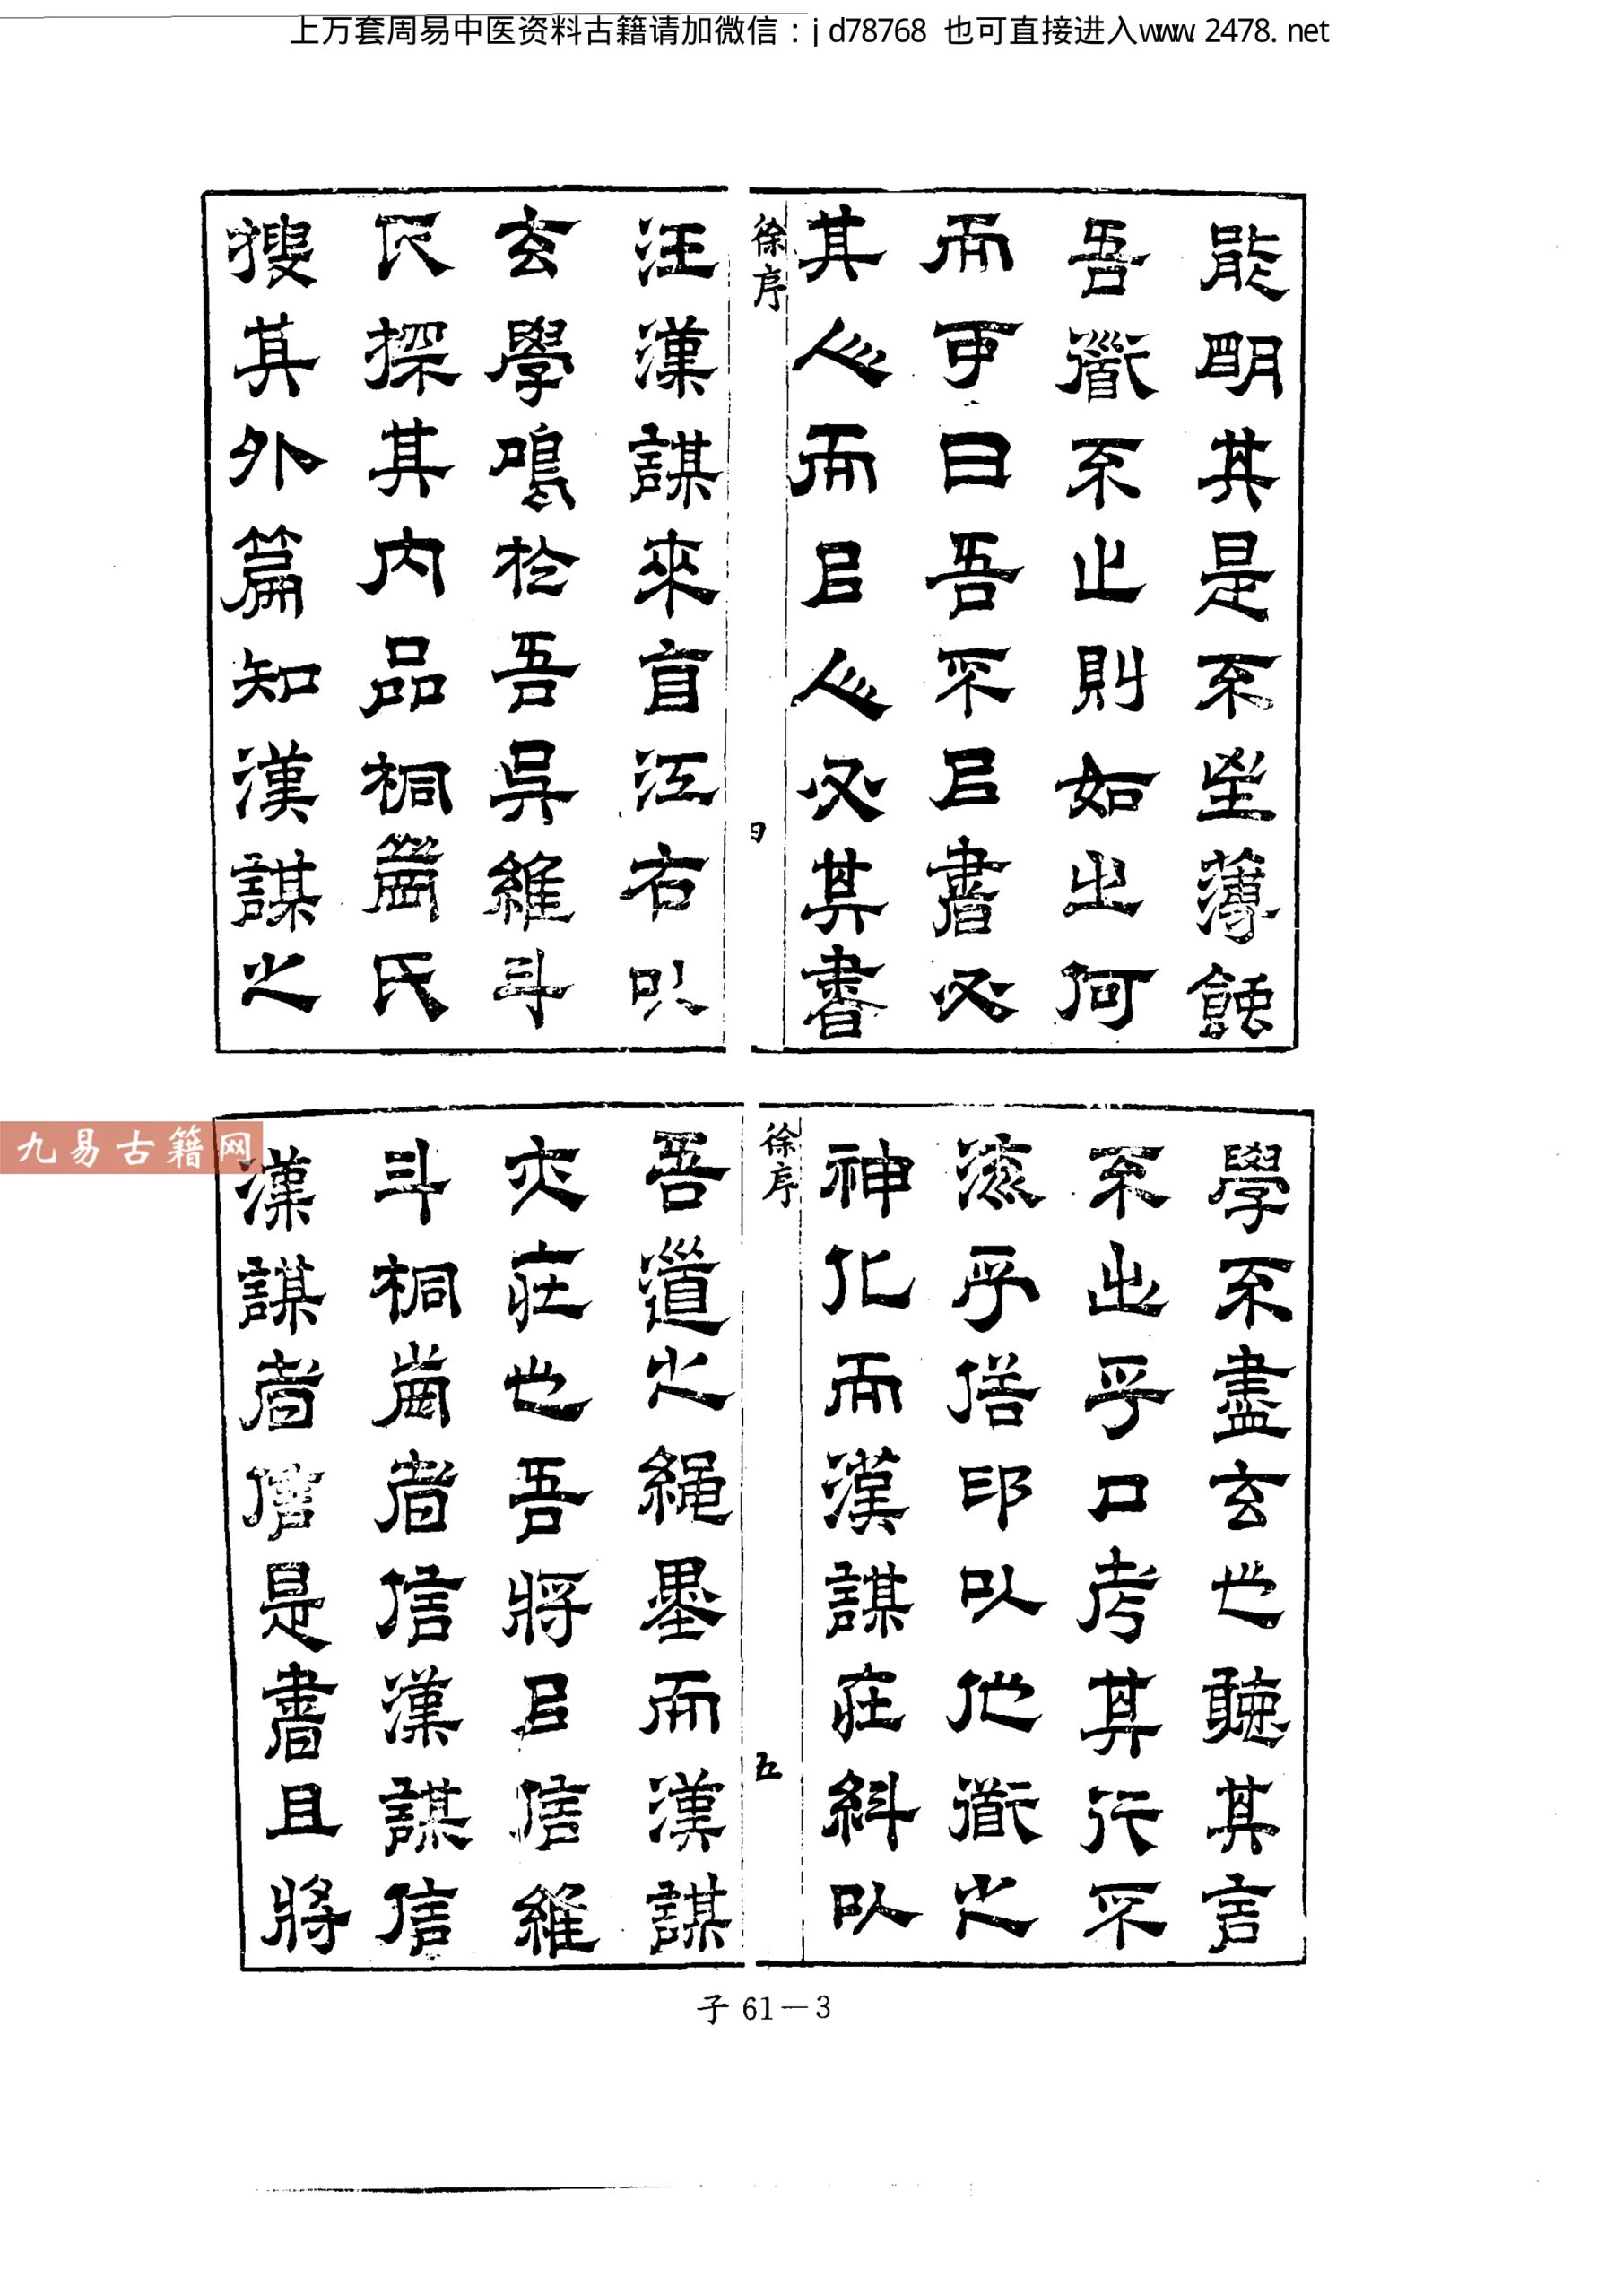 上万套周易中医资料古籍请加微信：jd78768 也可直接进入www.2478.net
能明其是不坐薄蝕
吾道不止則如之何
而可曰吾不以書必
其人而以人必其書
徐序
四
汪漢謀來自江右以
玄學鳴於吾吳維斗
氏探其内品桐崗氏
搜其外篇知漢謀之
學不盡玄也聽其言
不出乎口考其行不
悖乎倍印以他道之
神化而漢謀在糾以
徐序
五
吾道之繩墨而漢謀
夾莊也吾將以信維
斗桐崗者信漢謀信
漢謀者信是書且將
九易古籍网
子 61－3